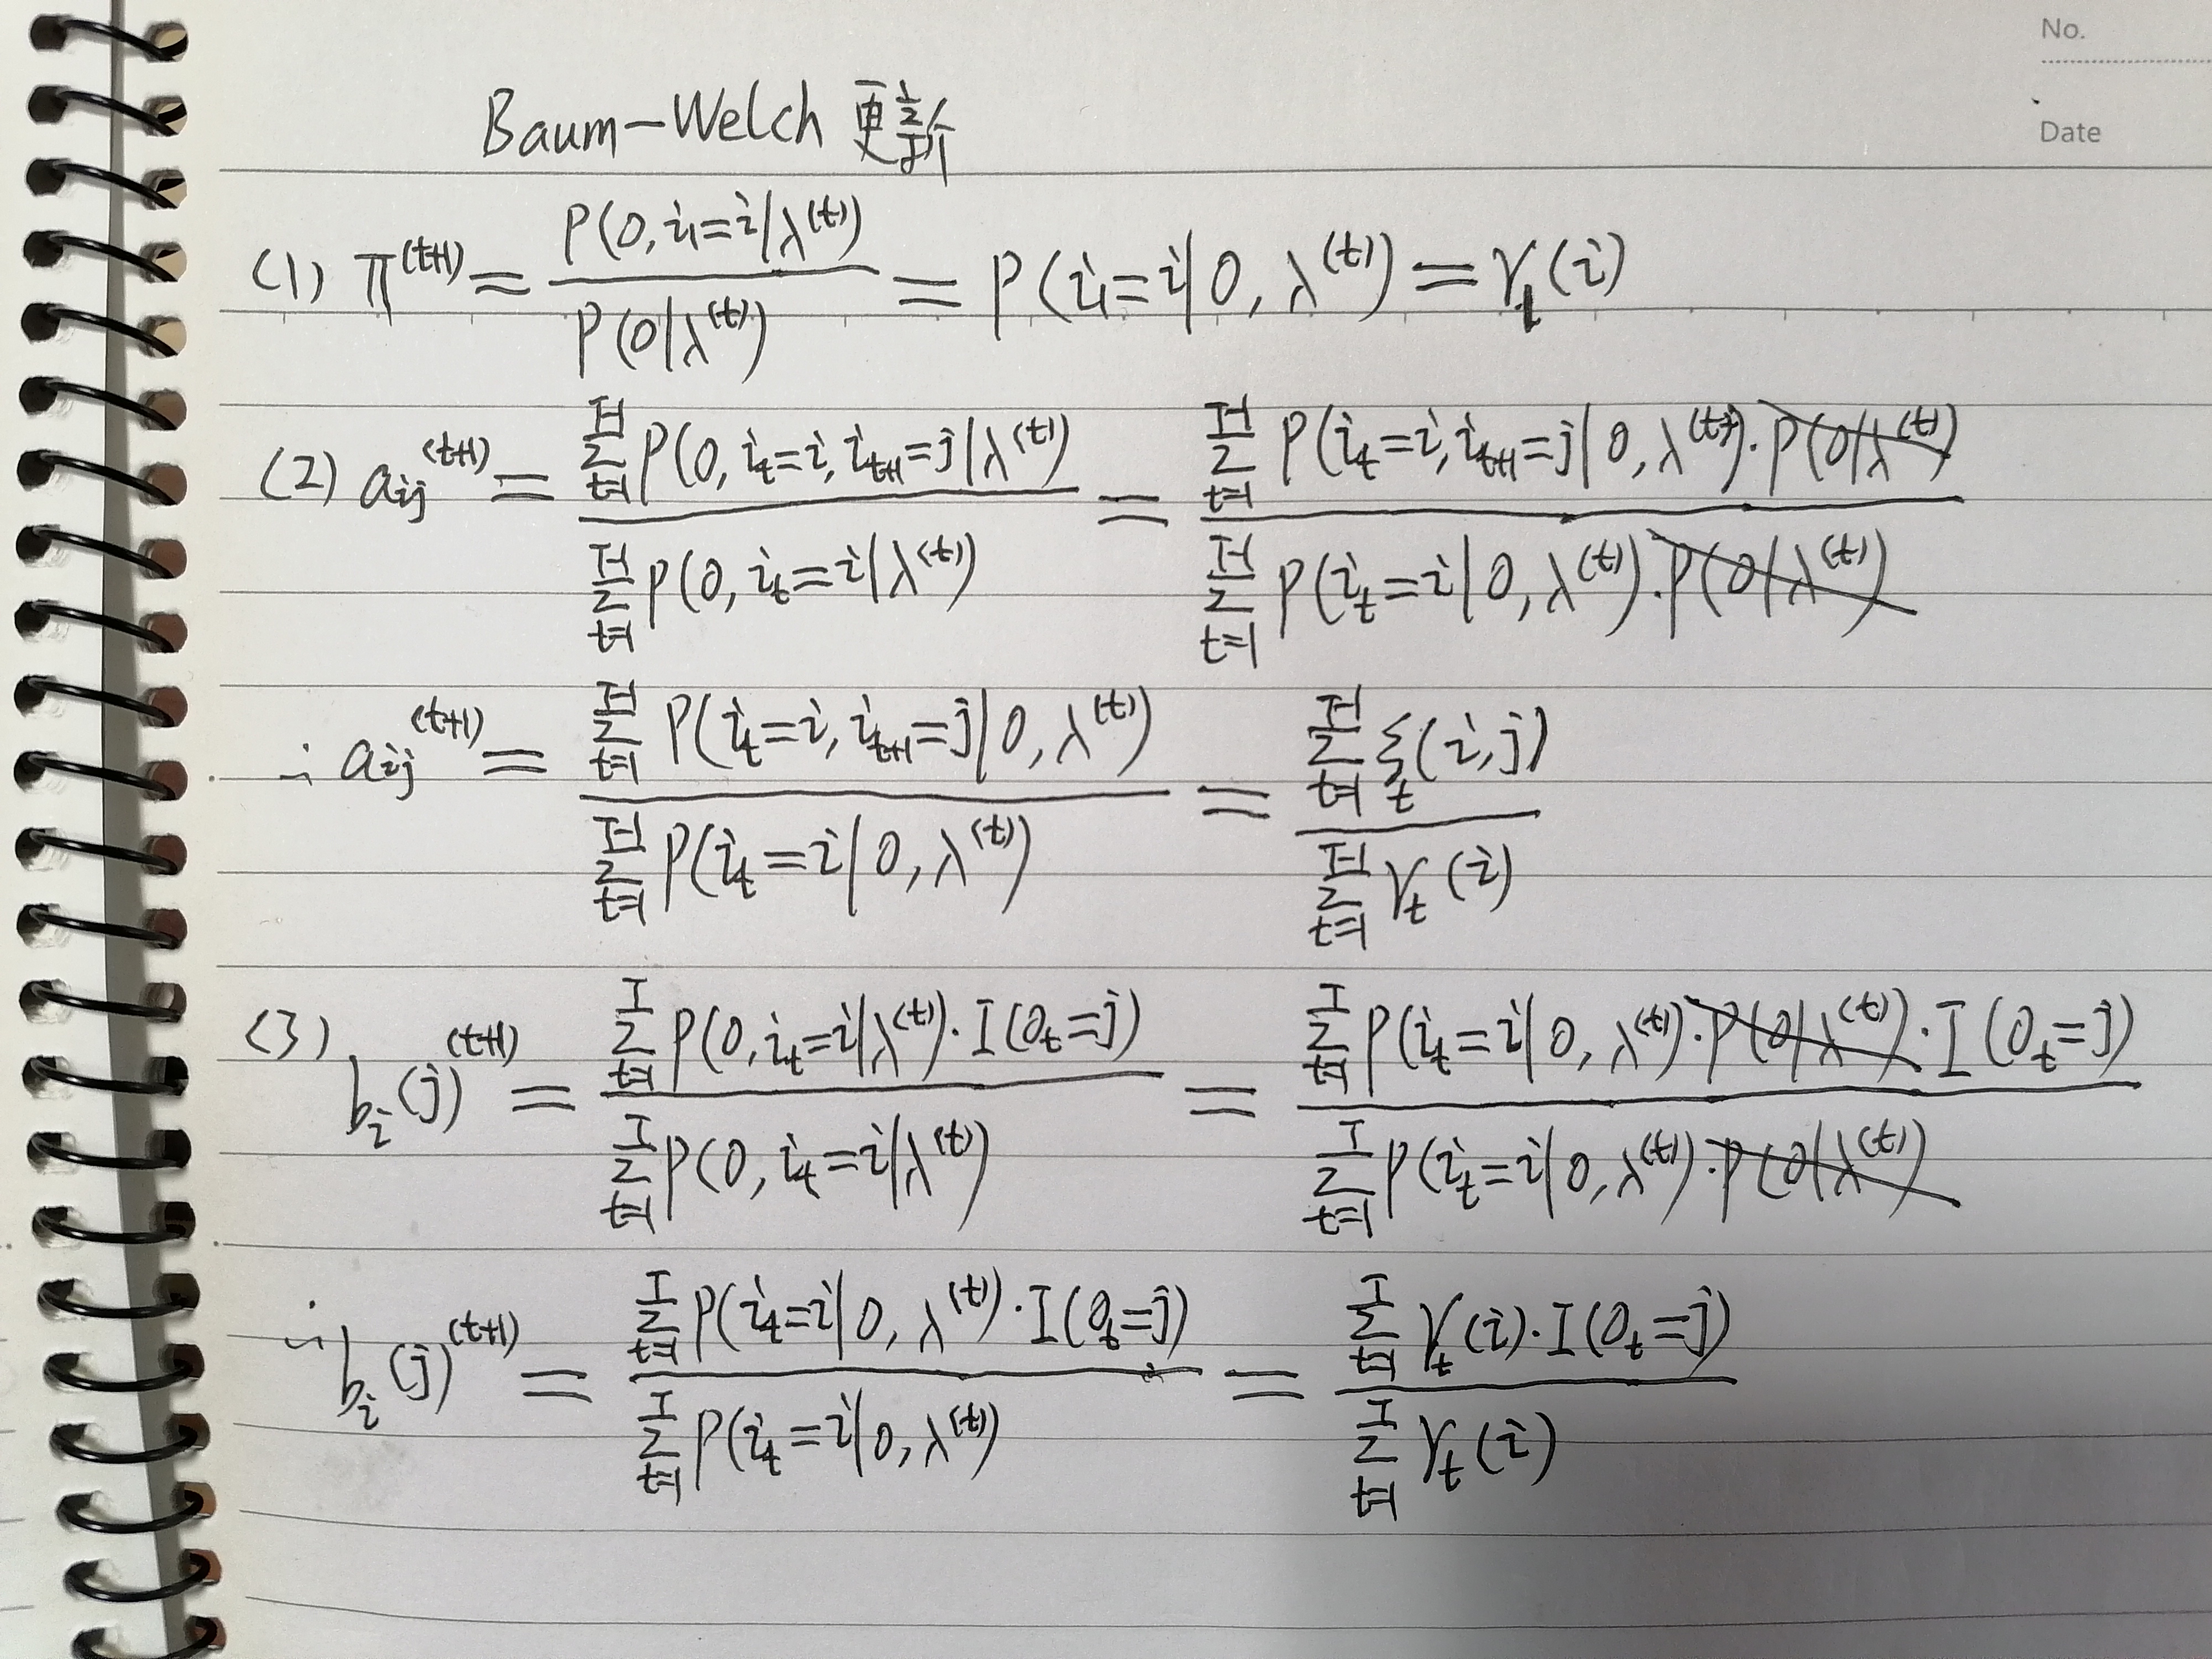 No.
Date
Baum-Welch 更新
(1) π^(t+1) = P(O, i₁=i|λ^(t)) / P(O|λ^(t)) = P(i₁=i|O, λ^(t)) = γ₁(i)
(2) a_ij^(t+1) = ∑_{t=1}^{T-1} P(O, i_t=i, i_{t+1}=j|λ^(t)) / ∑_{t=1}^{T-1} P(O, i_t=i|λ^(t)) = ∑_{t=1}^{T-1} P(i_t=i, i_{t+1}=j|O, λ^(t))·P(O|λ^(t)) / ∑_{t=1}^{T-1} P(i_t=i|O, λ^(t))·P(O|λ^(t))
∴ a_ij^(t+1) = ∑_{t=1}^{T-1} P(i_t=i, i_{t+1}=j|O, λ^(t)) / ∑_{t=1}^{T-1} P(i_t=i|O, λ^(t)) = ∑_{t=1}^{T-1} ξ_t(i,j) / ∑_{t=1}^{T-1} γ_t(i)
(3) b_i(j)^(t+1) = ∑_{t=1}^{T} P(O, i_t=i|λ^(t))·I(O_t=j) / ∑_{t=1}^{T} P(O, i_t=i|λ^(t)) = ∑_{t=1}^{T} P(i_t=i|O, λ^(t))·P(O|λ^(t))·I(O_t=j) / ∑_{t=1}^{T} P(i_t=i|O, λ^(t))·P(O|λ^(t))
∴ b_i(j)^(t+1) = ∑_{t=1}^{T} P(i_t=i|O, λ^(t))·I(O_t=j) / ∑_{t=1}^{T} P(i_t=i|O, λ^(t)) = ∑_{t=1}^{T} γ_t(i)·I(O_t=j) / ∑_{t=1}^{T} γ_t(i)